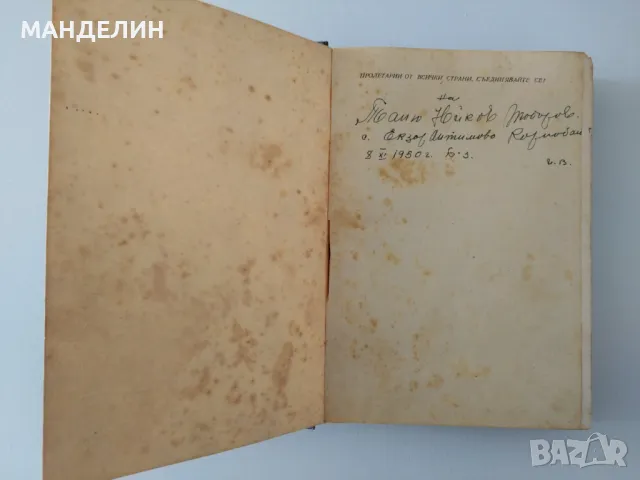 МАНДЕЛИН
ПРОЛЕТАРИИ ОТ ВСИЧКИ СТРАНИ, СЪЕДИНЯВАЙТЕ СЕ!
на
Нйков
с. Екзарх Антимово Карнобат
8 XI 1950 г.
BAZAR
bg